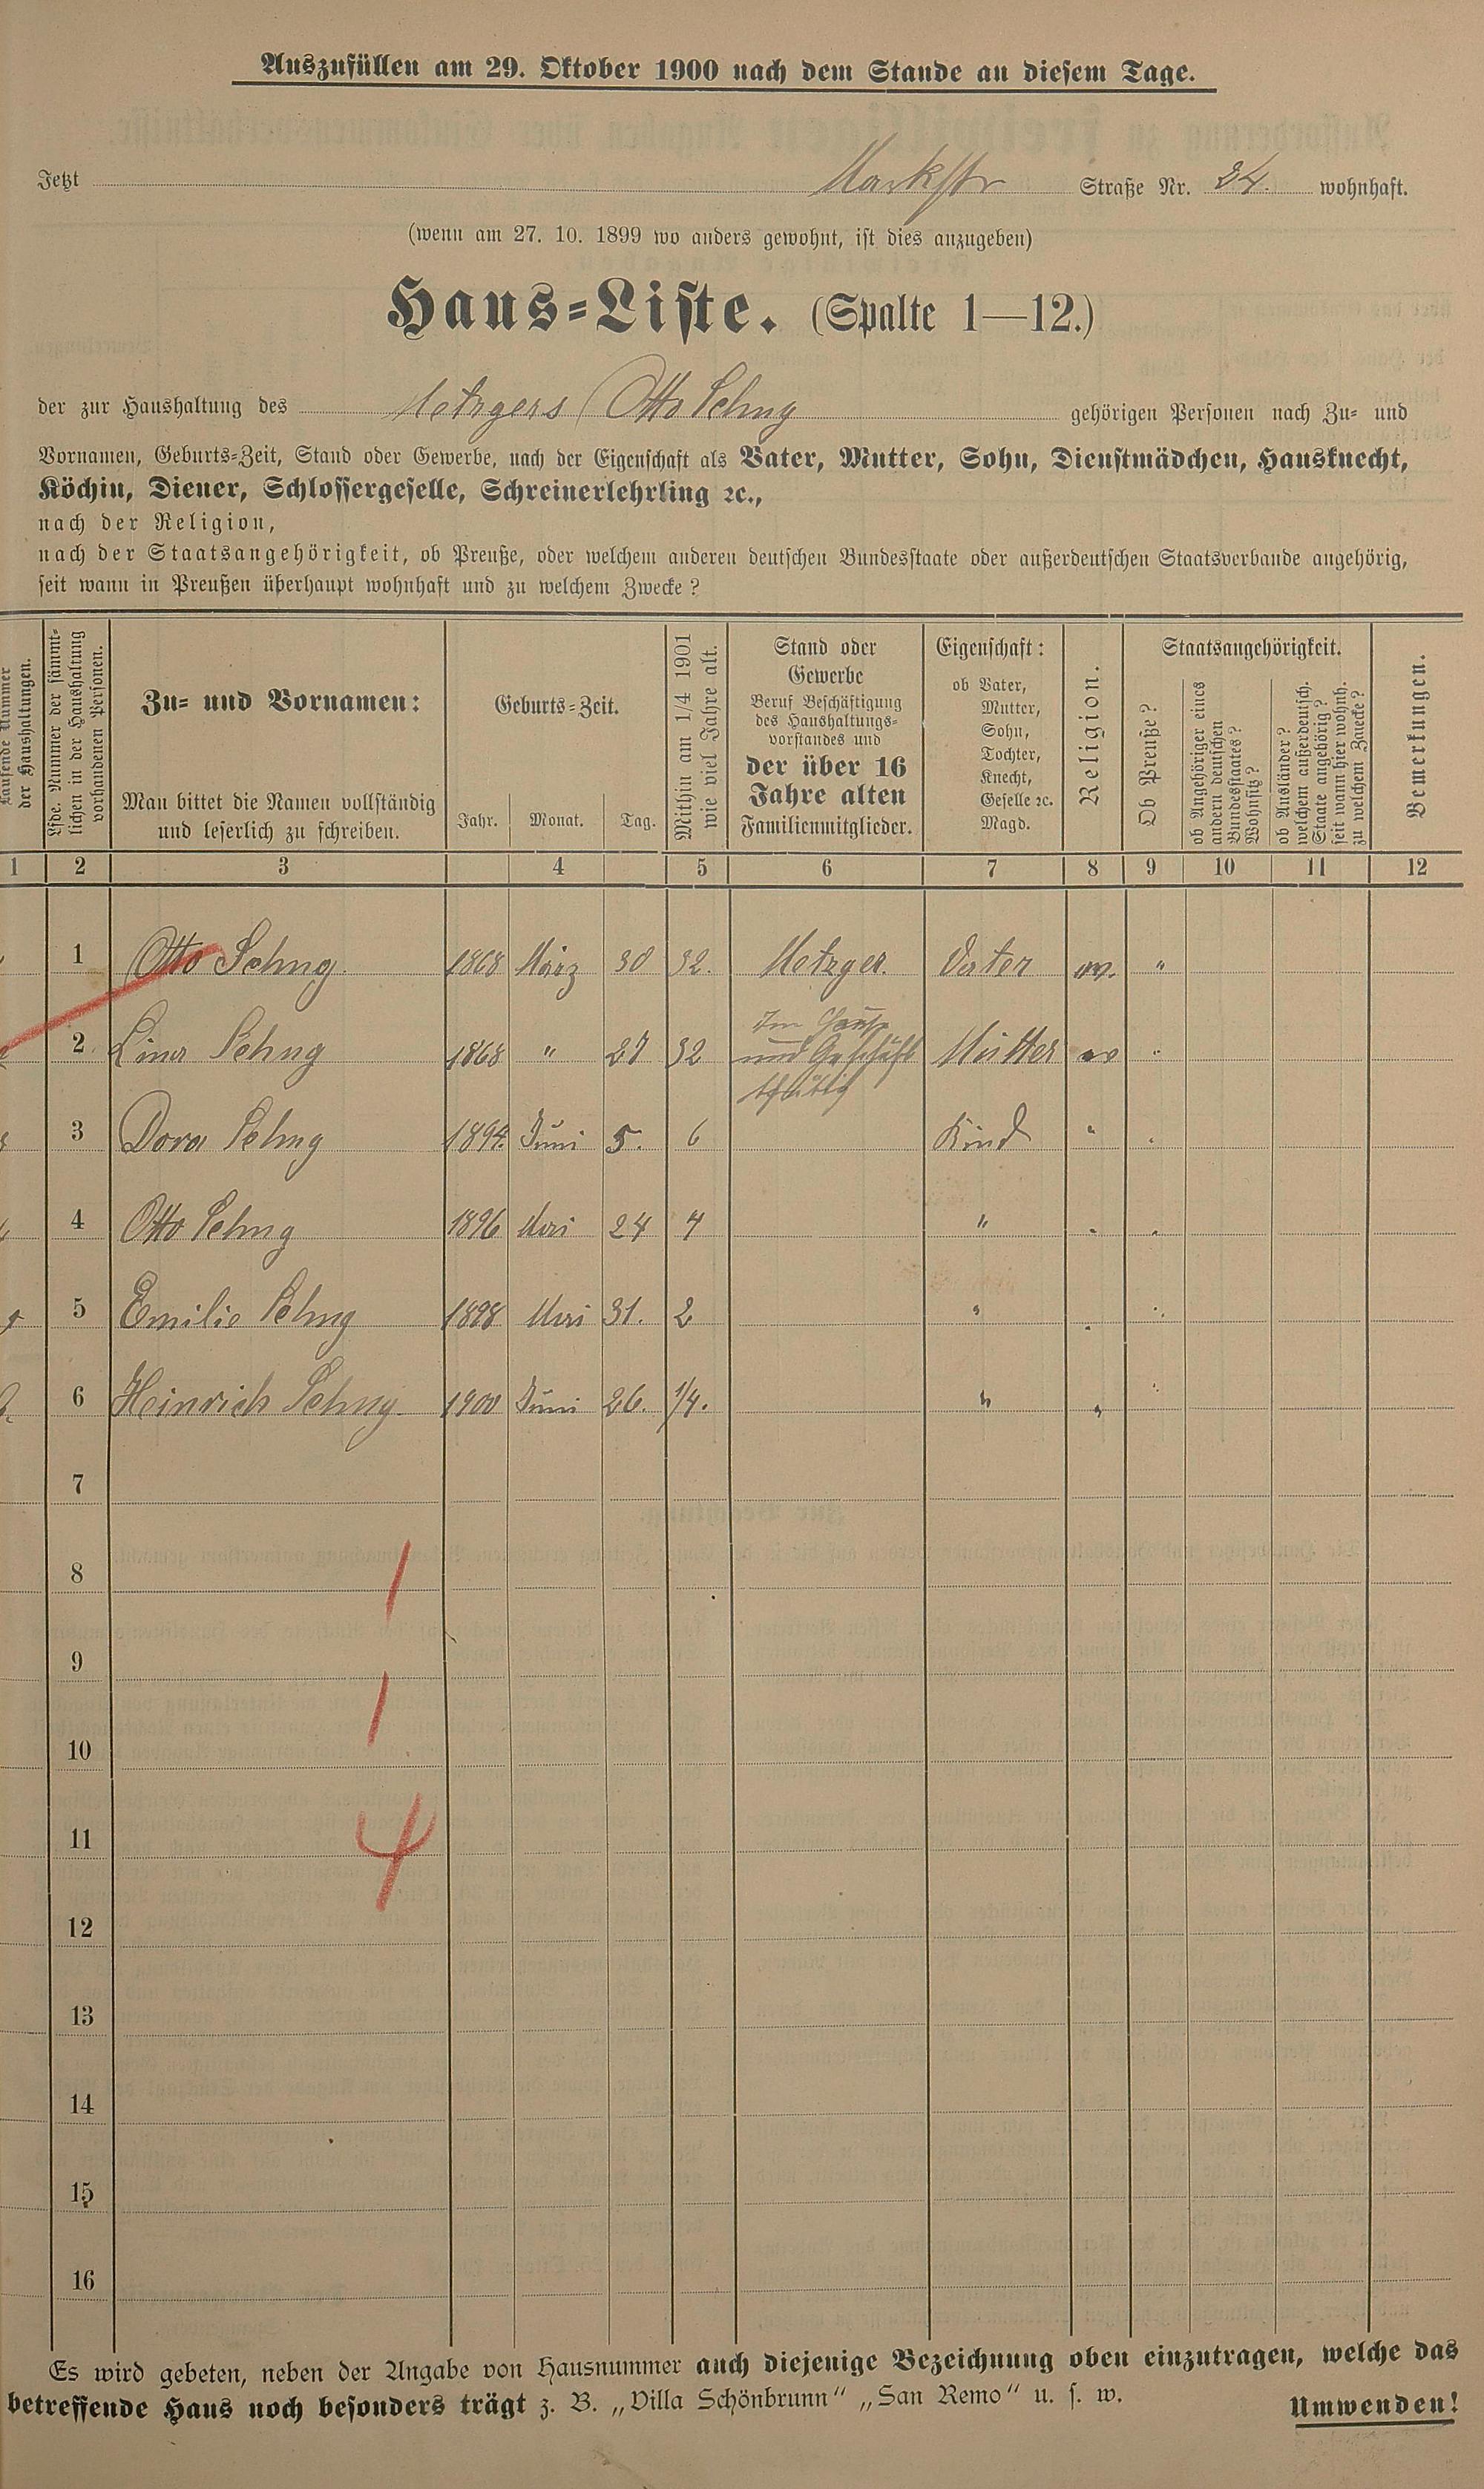 Auszufüllen am 29. Oktober 1900 nach dem Stande an diesem Tage.
Jetzt Markstr Straße Nr. 34. wohnhaft.
(wenn am 27. 10. 1899 wo anders gewohnt, ist dies anzugeben)
Haus-Liste. (Spalte 1—12.)
der zur Haushaltung des Metzgers Otto gehörigen Personen nach Zu- und
Vornamen, Geburts-Zeit, Stand oder Gewerbe, nach der Eigenschaft als Vater, Mutter, Sohn, Dienstmädchen, Hausknecht,
Köchin, Diener, Schlossergeselle, Schreinerlehrling ꝛc.,
nach der Religion,
nach der Staatsangehörigkeit, ob Preuße, oder welchem anderen deutschen Bundesstaate oder außerdeutschen Staatsverbande angehörig,
seit wann in Preußen überhaupt wohnhaft und zu welchem Zwecke?
Laufende Nummer
der Haushaltungen.
Lfde. Nummer der sämmt-
lichen in der Haushaltung
vorhandenen Personen.
Zu- und Vornamen:
Man bittet die Namen vollständig
und leserlich zu schreiben.
Geburts-Zeit.
Jahr. Monat. Tag.
Mithin am 1/4 1901
wie viel Jahre alt.
Stand oder
Gewerbe
Beruf Beschäftigung
des Haushaltungs-
vorstandes und
der über 16
Jahre alten
Familienmitglieder.
Eigenschaft:
ob Vater,
Mutter,
Sohn,
Tochter,
Knecht,
Geselle ꝛc.
Magd.
Religion.
Staatsangehörigkeit.
Ob Preuße?
ob Angehöriger eines
andern deutschen
Bundesstaates?
Wohnsitz?
ob Ausländer?
welchem außerdeutsch.
Staate angehörig?
seit wann hier wohnh.
zu welchem Zwecke?
Bemerkungen.
1 2 3 4 5 6 7 8 9 10 11 12
1 Otto 1868 März 30 32. Metzger. Vater ev. "
2 Lina 1868 " 27 32 Im Haus und Geschäft thätig Mutter ev "
3 Dora 1894. Juni 5. 6 Kind " "
4 Otto 1896 Mai 24 4 " " "
5 Emilie 1898 Mai 31. 2 " " "
6 Heinrich 1900 Juni 26. 1/4. " " "
7
8
9
10
11
12
13
14
15
16
1
1
4
Es wird gebeten, neben der Angabe von Hausnummer auch diejenige Bezeichnung oben einzutragen, welche das
betreffende Haus noch besonders trägt z. B. „Villa Schönbrunn" „San Remo" u. s. w.
Umwenden!